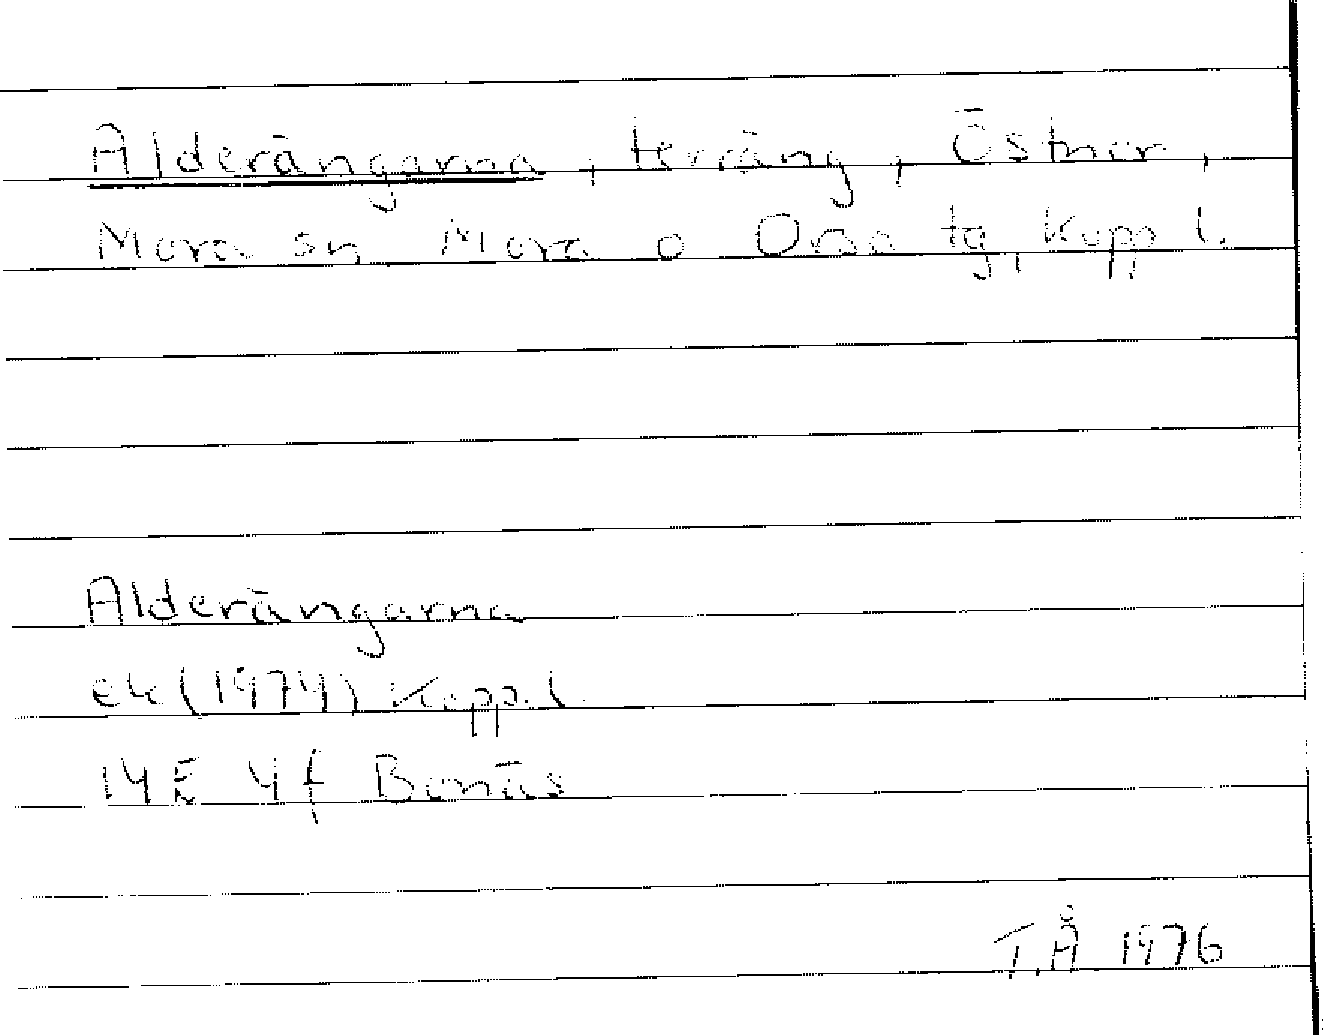 Alderängarna, terräng, Östnor,
Mora sn, Mora o Orsa tg, Kopp l.
Alderängarna
ek (1974) Kopp. l.
14E 4f Bonäs
T.Å 1976